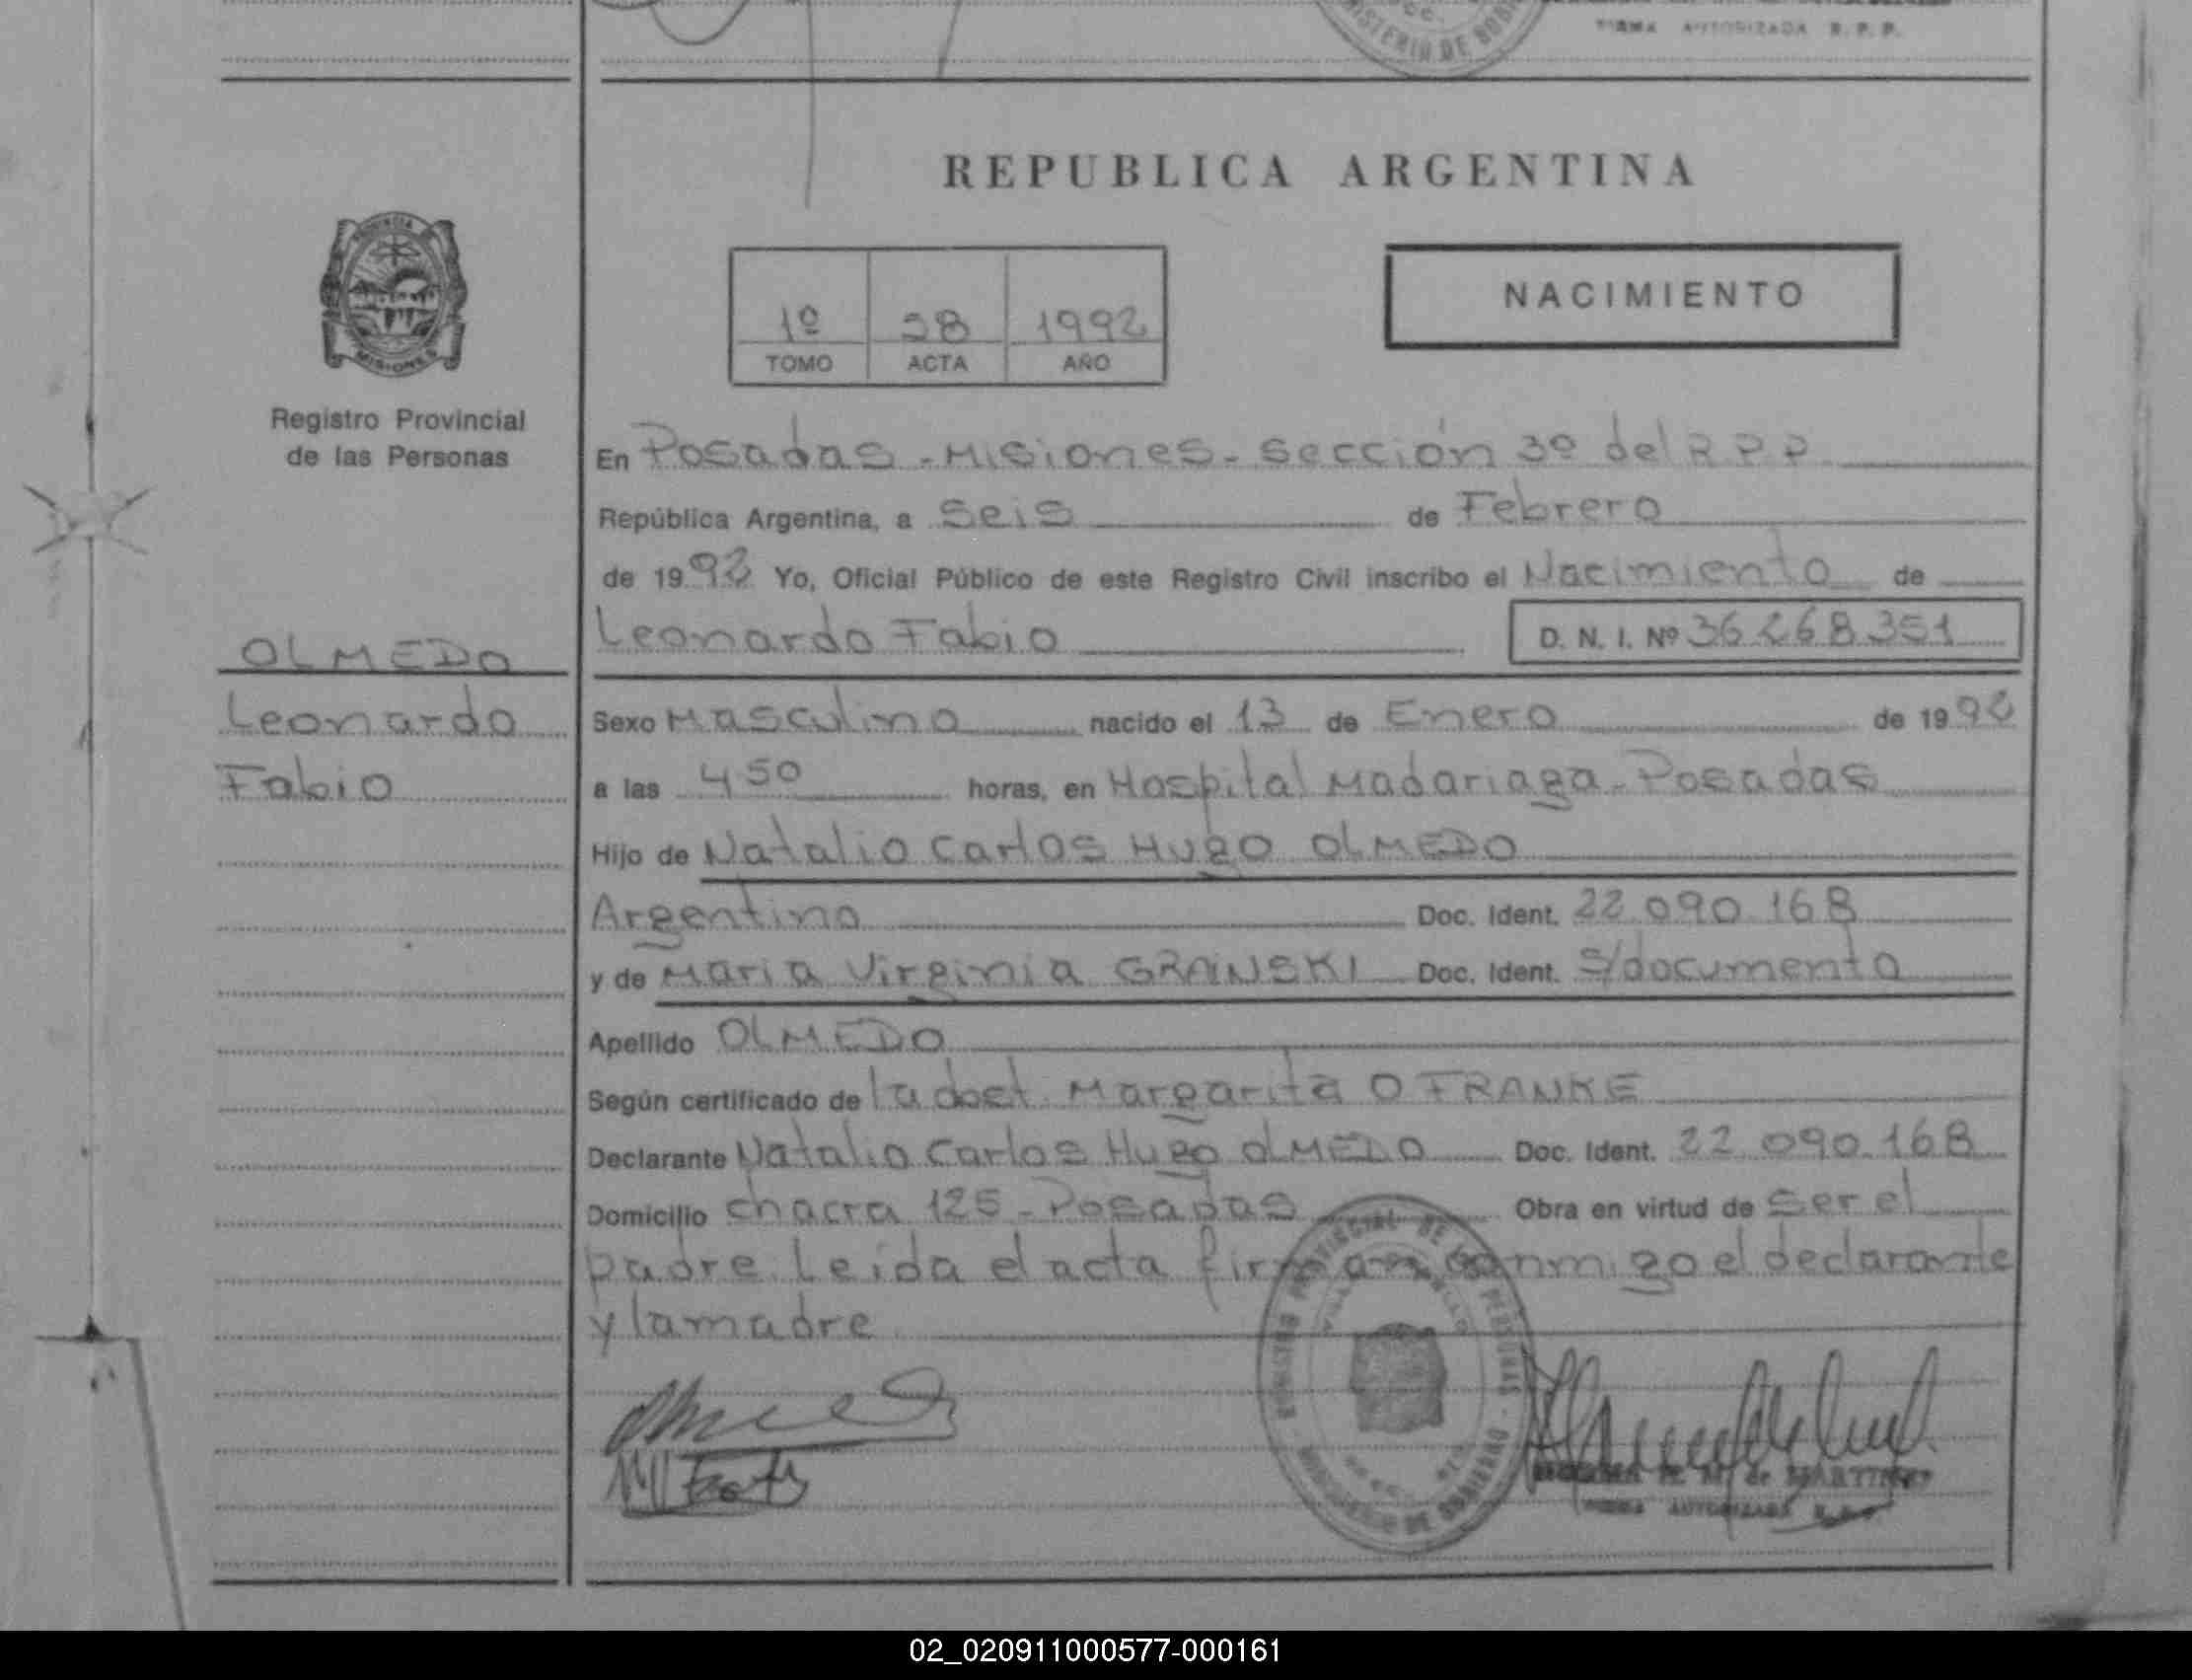 MINISTERIO DE GOBI
FIRMA AUTORIZADA R. P. P.
REPUBLICA ARGENTINA
PROVINCIA
MISIONES
Registro Provincial
de las Personas
1º 28 1992
TOMO ACTA AÑO
NACIMIENTO
En Posadas - Misiones - Sección 3º del R P P
República Argentina, a Seis de Febrero
de 1992 Yo, Oficial Público de este Registro Civil inscribo el Nacimiento de
Leonardo Fabio D. N. I. Nº 36 268 351
OLMEDO
Leonardo
Fabio
Sexo Masculino nacido el 13 de Enero de 1992
a las 4 50 horas, en Hospital Madariaga - Posadas
Hijo de Natalio Carlos Hugo OLMEDO
Argentino Doc. Ident. 22 090 168
y de Maria Virginia GRAINSKI Doc. Ident. S/documento
Apellido OLMEDO
Según certificado de la doct. Margarita O FRANKE
Declarante Natalio Carlos Hugo OLMEDO Doc. Ident. 22 090 168
Domicilio chacra 125 - Posadas Obra en virtud de ser el
padre Leida el acta firman conmigo el declarante
y la madre
REGISTRO PROVINCIAL DE LAS PERSONAS
MINISTERIO DE GOBIERNO
de MARTINEZ
FIRMA AUTORIZADA
02_020911000577-000161